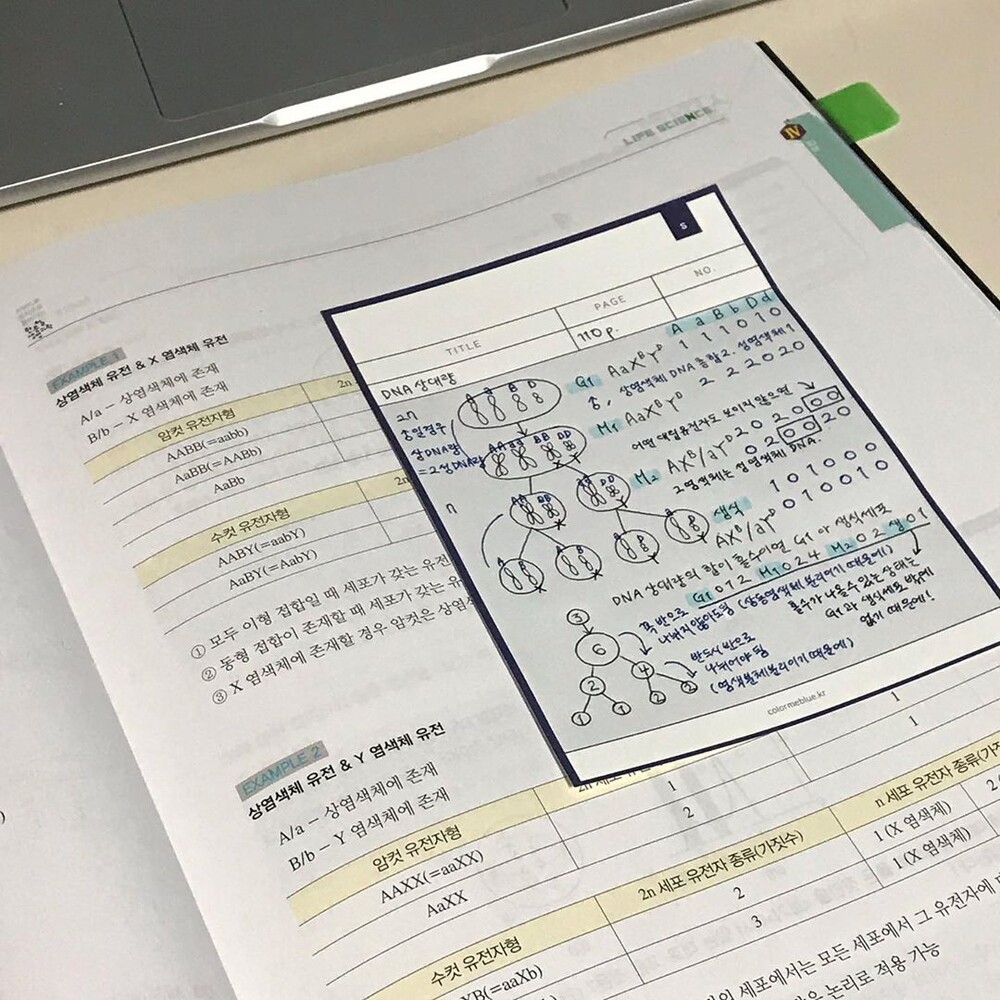 LIFE SCIENCE
IV
EXAMPLE 1
상염색체 유전 & X 염색체 유전
A/a – 상염색체에 존재
B/b – X 염색체에 존재
암컷 유전자형
2n
AABB(=aabb)
AaBB(=AABb)
AaBb
수컷 유전자형
2n
AABY(=aabY)
AaBY(=AabY)
① 모두 이형 접합일 때 세포가 갖는 유전
② 동형 접합이 존재할 때 세포가 갖는
③ X 염색체에 존재할 경우 암컷은 상염색
S
TITLE
PAGE
NO.
DNA 상대량
110 p.
A a B b D d
G1 AaX^BY^D 1 1 1 0 1 0
총, 상염색체 DNA 총합 2. 성염색체 1
M1 AaX^BY^D 2 2 2 0 2 0
어떤 대립유전자도 보이지 않으면
M2 AX^B/aY^D 2 0 2 0 0 0
0 2 0 0 2 0
2염색체는 성염색체 DNA.
생식 1 0 1 0 0 0
AX^B/aY^D 0 1 0 0 1 0
DNA 상대량의 합이 홀수이면 G1 or 생식세포
G1 0 1 2 M1 0 2 4 M2 0 2 생 0 1
2n
총일 경우
상DNA량
=2성DNA량
n
A B D
AA BB DD
3
6
2
4
1
1
2
2
꼭 반으로
나눠지 않아도 됨 (상동염색체 분리이기 때문에)
반드시 반으로
나눠어야 됨
(염색분체분리이기 때문에)
홀수가 나올 수 있는 상태는
G1과 생식세포 밖에
없기 때문에!
colormeblue.kr
1
1
EXAMPLE 2
상염색체 유전 & Y 염색체 유전
A/a – 상염색체에 존재
B/b – Y 염색체에 존재
암컷 유전자형
AAXX(=aaXX)
1
AaXX
2
수컷 유전자형
2n 세포 유전자 종류(가짓수)
n 세포 유전자 종류(가
XB(=aaXb)
2
1 (X 염색체)
3
1 (X 염색체)
의 세포에서는 모든 세포에서 그 유전자에
논리로 적용 가능